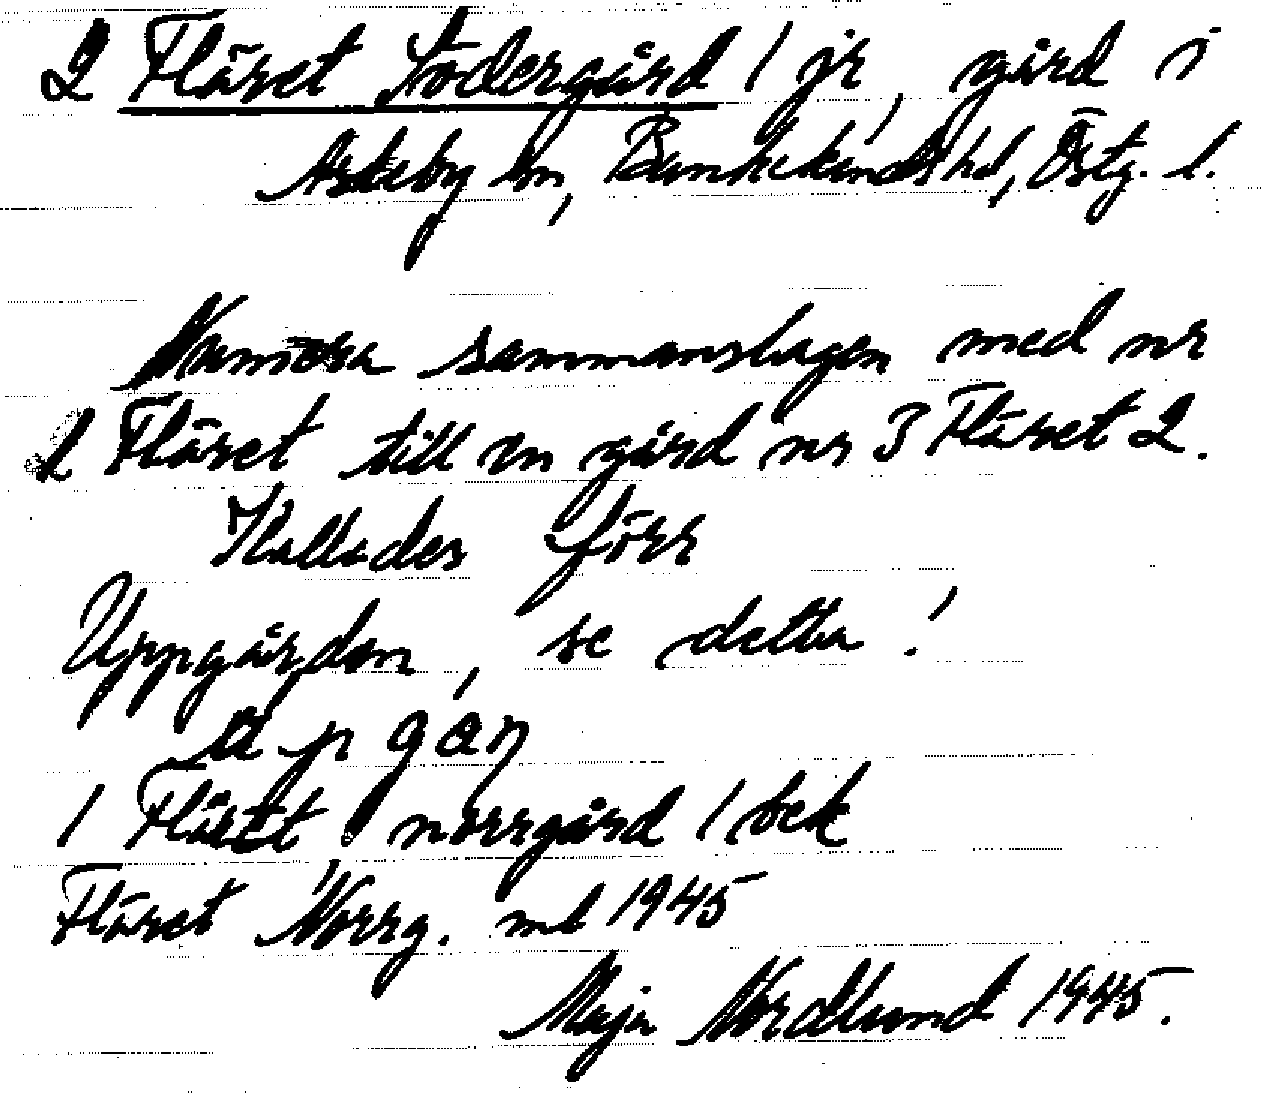 2 Fläret Södergård 1 jr, gård i
Askeby sn, Bankekinds hd, Östg. l.
Numera sammanslagen med nr
1 Fläret till en gård nr 3 Fläret 2.
Kallades förr
Uppgården, se detta!
1 Fläret norrgård 1 bek
Fläret Norrg. mb 1945
Maja Nordlund 1945.